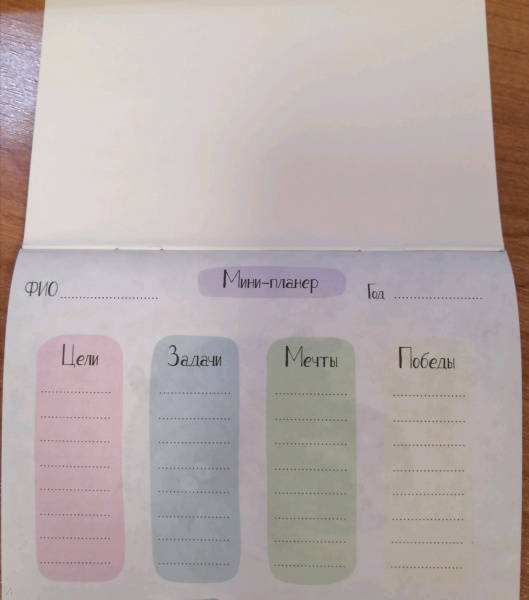 Мини-планер
ФИО
Год
Цели
Задачи
Мечты
Победы